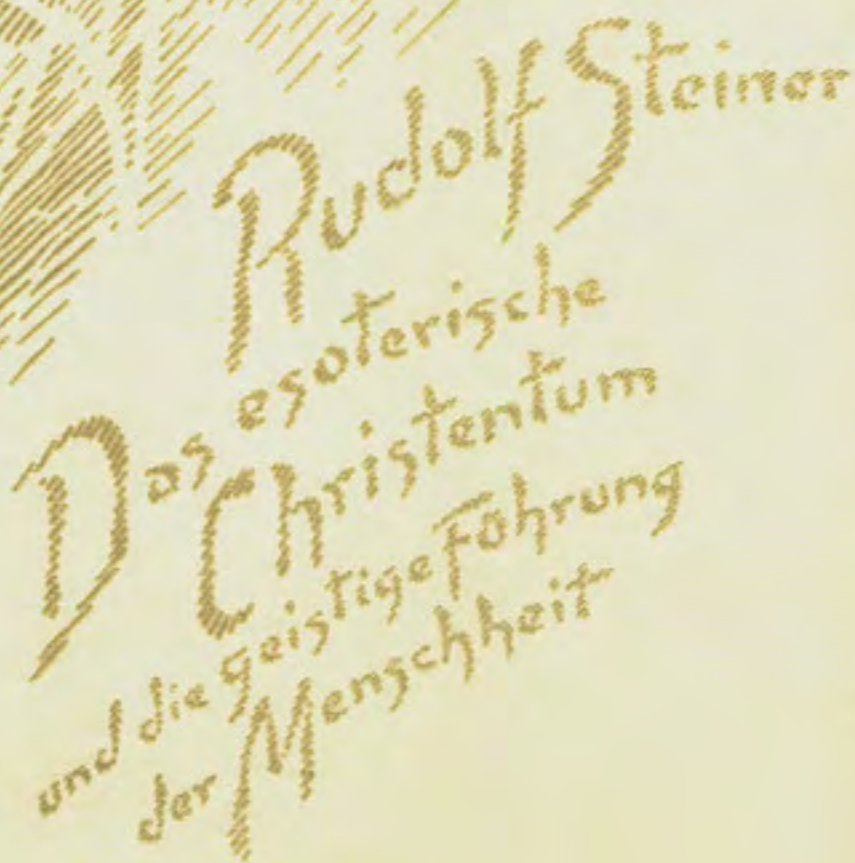 Rudolf Steiner
Das esoterische
Christentum
und die geistige Führung
der Menschheit